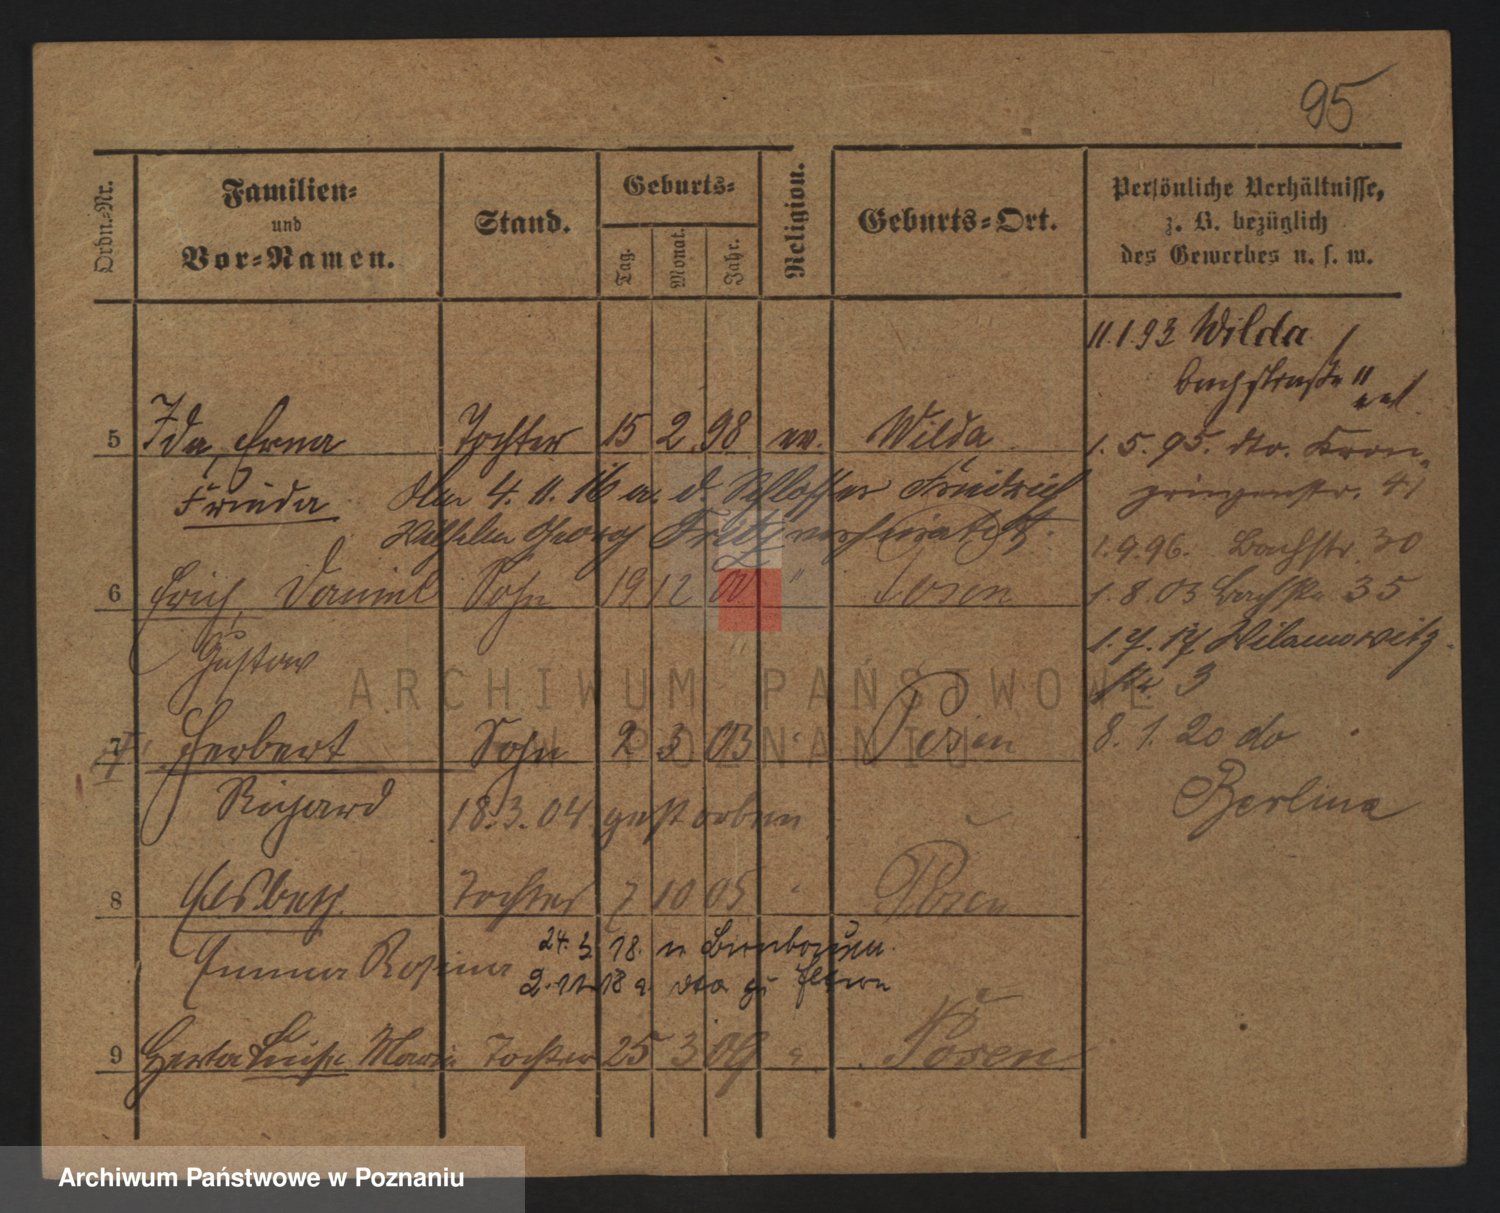 95
Ordn.-Nr.
Familien-
und
Vor-Namen.
Stand.
Geburts-
Tag.
Monat.
Jahr.
Religion.
Geburts-Ort.
Persönliche Verhältnisse,
z. B. bezüglich
des Gewerbes u. s. w.
11.1.93 Wilda
Bachstraße 11
5 Ida, Erna Tochter 15 2 98 ev. Wilda
1. 5. 95. dto. Kron
prinzenstr. 41
Frieda Am 4. 11. 16 a. d. Schlosser Friedrich
Wilhelm Georg Fritz verheiratet.
1.9.96. Bachstr. 30
6 Erich, Daniel Sohn 19 12 00 " Posen
1. 8. 03 Bachstr. 35
Gustav
1. 7. 17 Wilamowitz
str. 3
7 Herbert Sohn 2 3 03 " Posen
8. 1. 20 do
Richard 18. 3. 04 gestorben
Berlin
8 Elsbeth Tochter 7 10 05 " Posen
Emma Rosina 24. 3. 18. n. Birnbaum.
2. 11. 18 v. dto zu Eltern
9 Herta Luise Marie Tochter 25 3 09 " Posen
ARCHIWUM PAŃSTWOWE
W POZNANIU
Archiwum Państwowe w Poznaniu